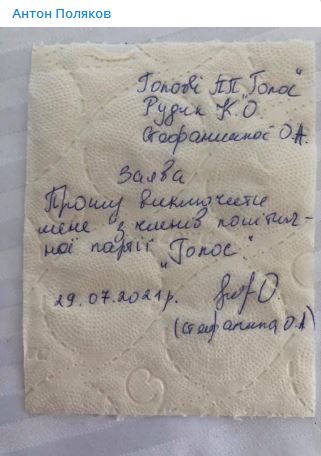 Антон Поляков
Голові ПП "Голос"
Рудик К.О.
Стефанишиної О.А.
Заява
Прошу виключити
мене з членів політич-
ної партії
"Голос".
29.07.2021р.
(Стефанишина О.А)